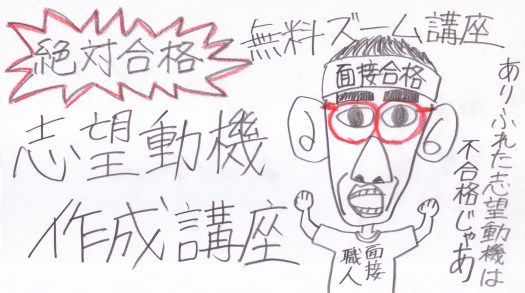 絶対合格
無料ズーム講座
志望動機
作成講座
面接合格
ありふれた志望動機は
不合格じゃあ
面接
職人